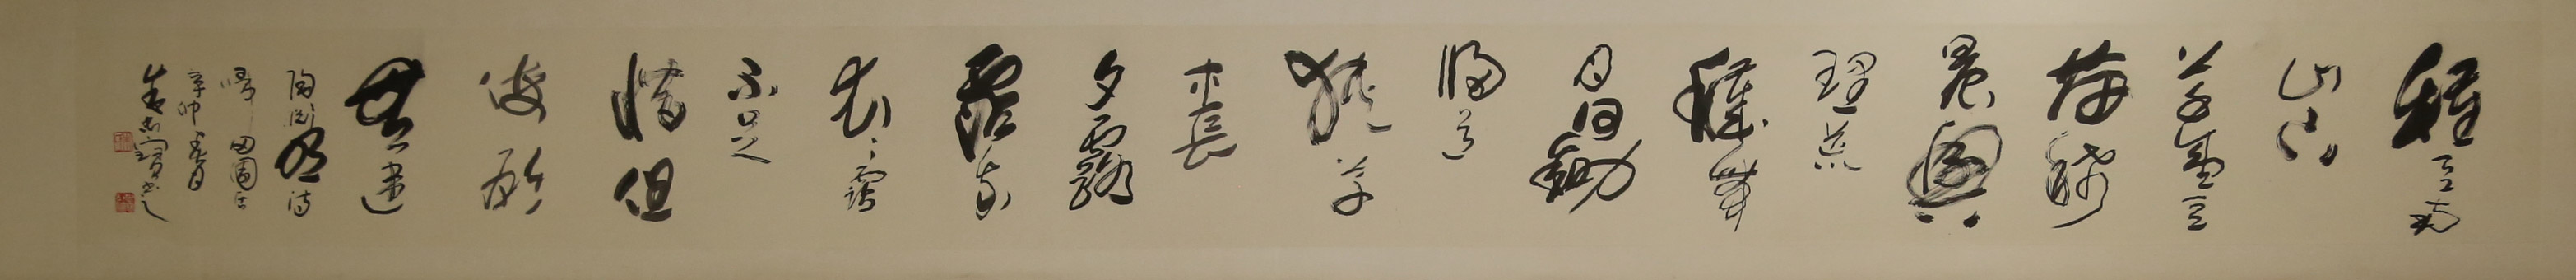 種豆南
山下
草盛豆
苗稀
晨興
理荒
穢帶
月荷鋤
歸道
狹草
木長
夕露
霑我
衣〻霑
不足
惜但
使願
無違
陶淵明詩
歸田園居
辛卯春月
書之